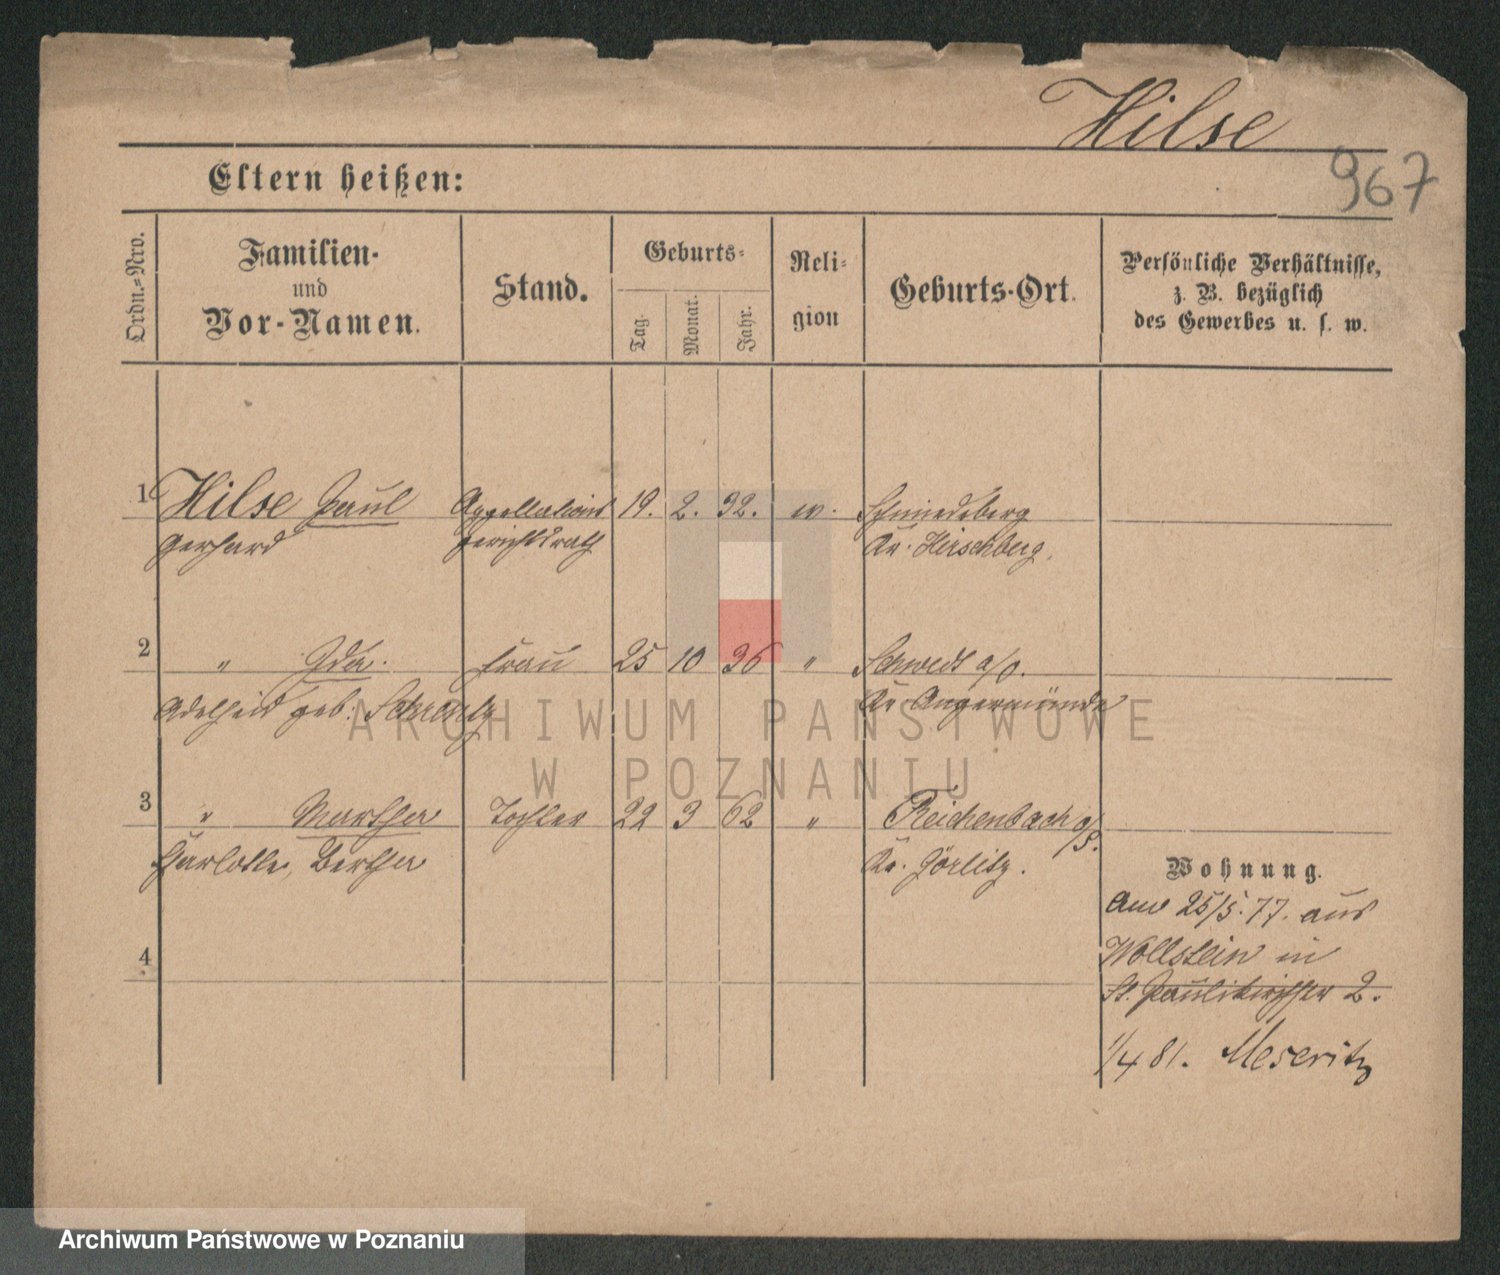 Hilse
967
Eltern heißen:
Ordn.=Nro.
Familien-
und
Vor-Namen.
Stand.
Geburts-
Tag.
Monat.
Jahr.
Reli-
gion
Geburts-Ort.
Persönliche Verhältnisse,
z. B. bezüglich
des Gewerbes u. s. w.
1 Hilse Paul Appellations 19. 2. 32. ev. Schmiedeberg
Gerhard gerichtsrath Kr. Hirschberg.
2 " Ida. Frau 25 10 36 " Schwedt a/O.
Adelheid geb. Kr. Angermünde
ARCHIWUM PAŃSTWOWE
W POZNANIU
3 " Martha Tochter 22 3 62 " Reichenbach
Charlotte, Bertha Kr. Görlitz.
Wohnung.
Am 25/5. 77. aus
Wollstein in
St. Paulikirchstr 2.
4
1/4 81. Meseritz
Archiwum Państwowe w Poznaniu